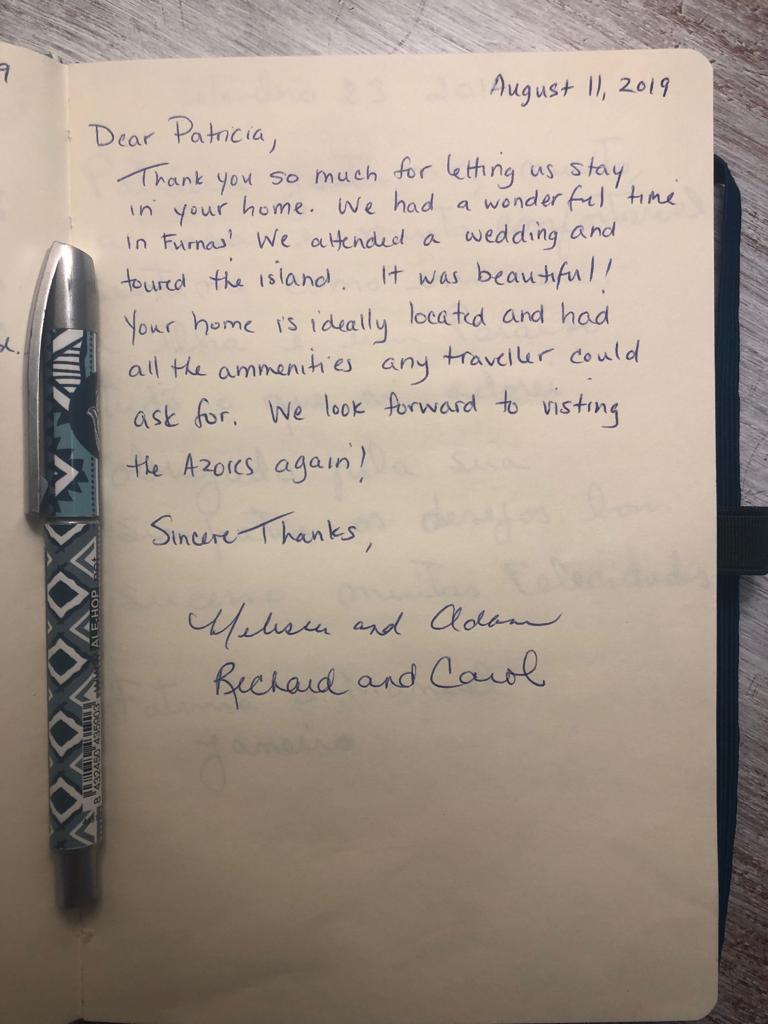 August 11, 2019
Dear Patricia,
Thank you so much for letting us stay
in your home. We had a wonderful time
in Furnas! We attended a wedding and
toured the island. It was beautiful!
Your home is ideally located and had
all the ammenities any traveller could
ask for. We look forward to visting
the Azores again!
Sincere Thanks,
Melissa and Adam
Richard and Carol
9
d.
ALE-HOP
8 432450 435903